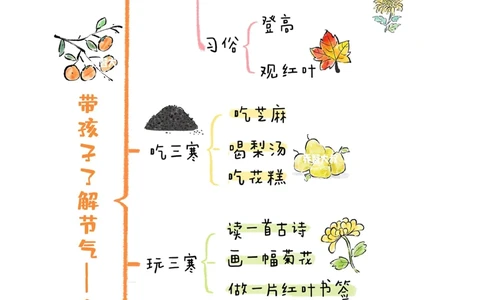 登高
习俗
观红叶
带孩子了解节气——
吃芝麻
吃三寒
喝梨汤
吃花糕
读一首古诗
玩三寒
画一幅菊花
做一片红叶书签